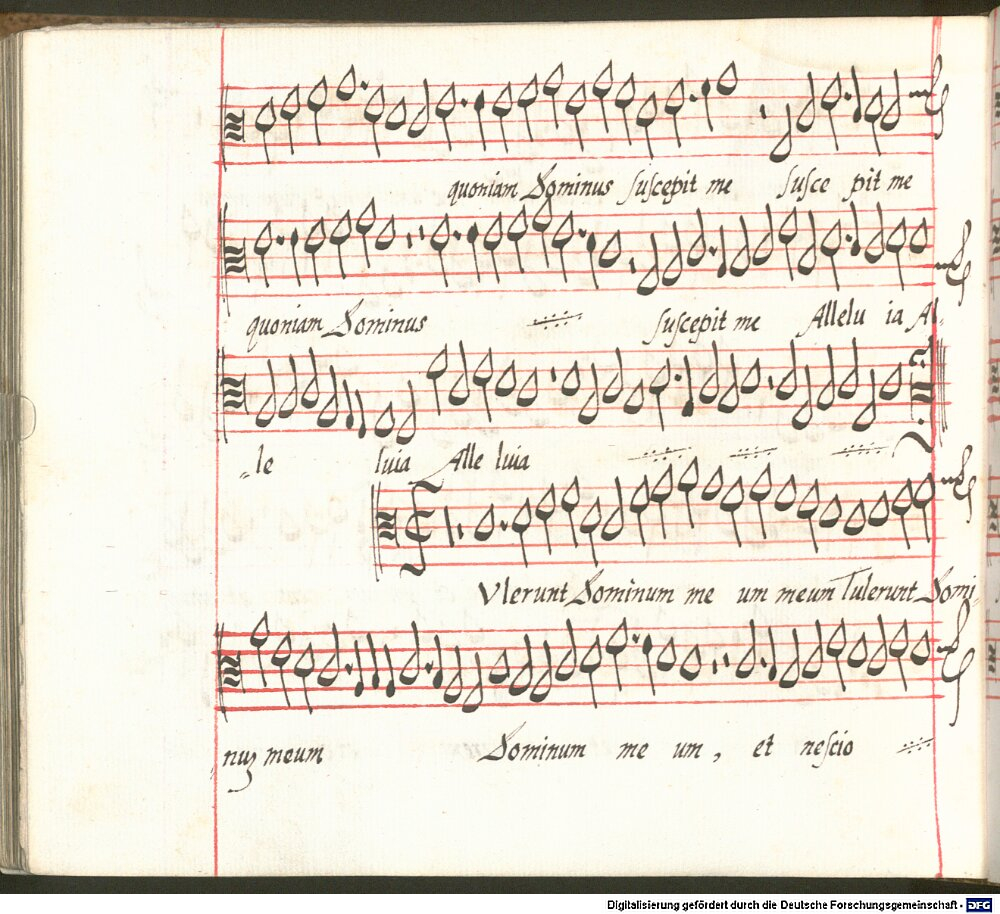 quoniam Dominus suscepit me susce pit me
quoniam Dominus suscepit me Allelu ia Al-
-le luia Alle luia
Vlerunt Dominum me um meum Tulerunt Domi-
nuz meum Dominum me um, et nescio
Digitalisierung gefördert durch die Deutsche Forschungsgemeinschaft - DFG